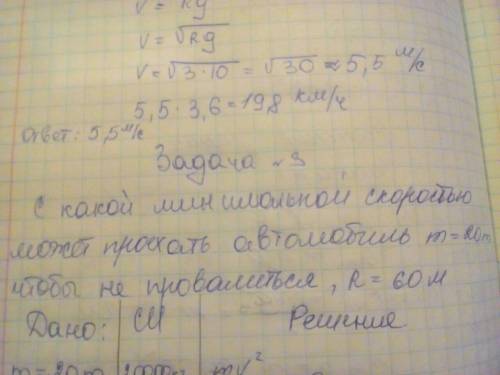 V = Rg
V = √Rg
V = √3·10 = √30 ≈ 5,5 м/с
5,5 · 3,6 = 19,8 км/ч
Ответ: 5,5 м/с
Задача №3
С какой минимальной скоростью
может проехать автомобиль m = 20т
чтобы не провалиться, R = 60 м
Дано: СИ Решение
m = 20т mV²